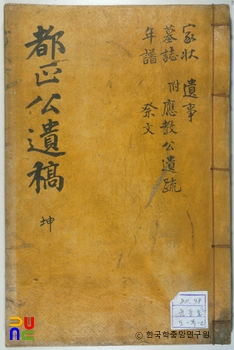 都正公遺稿
坤
家狀 遺事
墓誌 附應敎公遺䟽
年譜 祭文
ⓒ 한국학중앙연구원